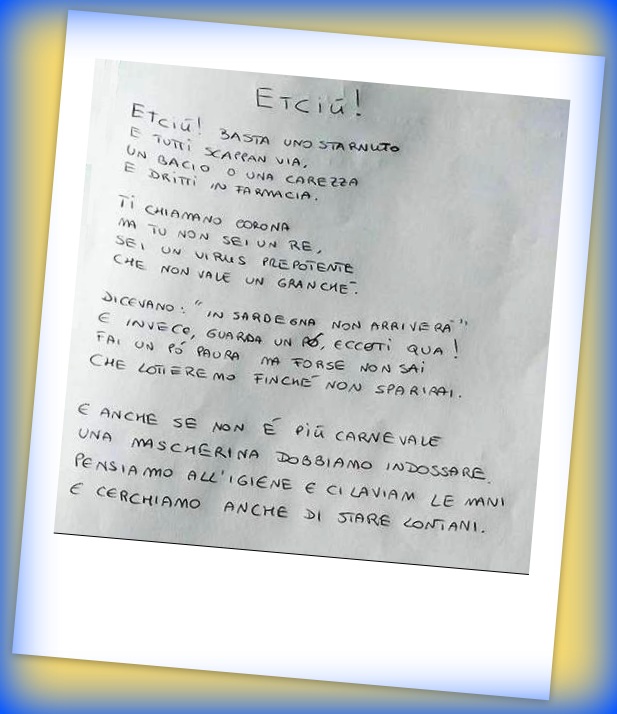 ETCIÙ!
ETCIÙ! BASTA UNO STARNUTO
E TUTTI SCAPPAN VIA.
UN BACIO O UNA CAREZZA
E DRITTI IN FARMACIA.
TI CHIAMANO CORONA
MA TU NON SEI UN RE,
SEI UN VIRUS PREPOTENTE
CHE NON VALE UN GRANCHÉ.
DICEVANO: "IN SARDEGNA NON ARRIVERÀ"
E INVECE, GUARDA UN PÓ, ECCOTI QUA!
FAI UN PÓ PAURA MA FORSE NON SAI
CHE LOTTEREMO FINCHÉ NON SPARIRAI.
E ANCHE SE NON É PIÙ CARNEVALE
UNA MASCHERINA DOBBIAMO INDOSSARE.
PENSIAMO ALL'IGIENE E CI LAVIAM LE MANI
E CERCHIAMO ANCHE DI STARE LONTANI.